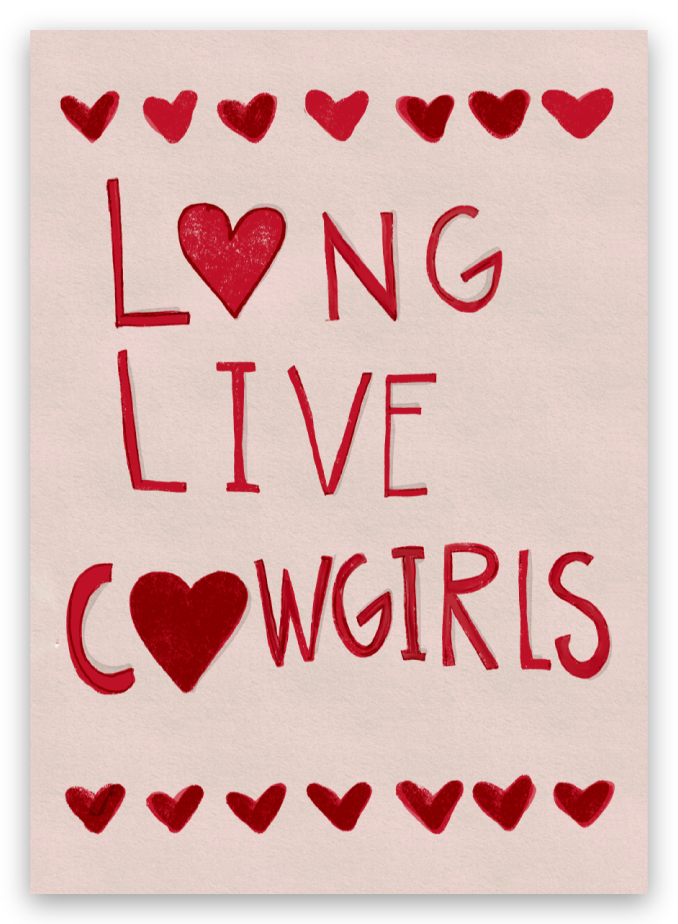 LONG
LIVE
COWGIRLS